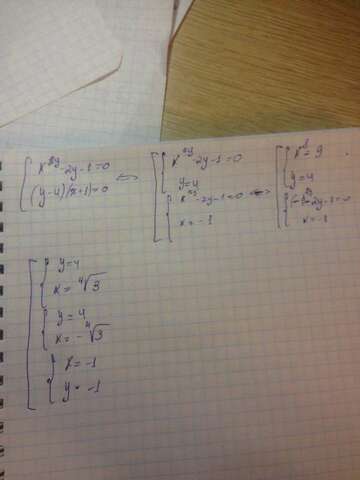 { x^2y - 2y - 1 = 0
(y-4)(x+1) = 0
⇔
[ { x^2y - 2y - 1 = 0
y = 4
{ x^2y - 2y - 1 = 0
x = -1
⇔
[ { x^8 = 9
y = 4
{ (-1)^2y - 2y - 1 = 0
x = -1
[ { y = 4
x = ⁴√3
{ y = 4
x = -⁴√3
{ x = -1
y = -1